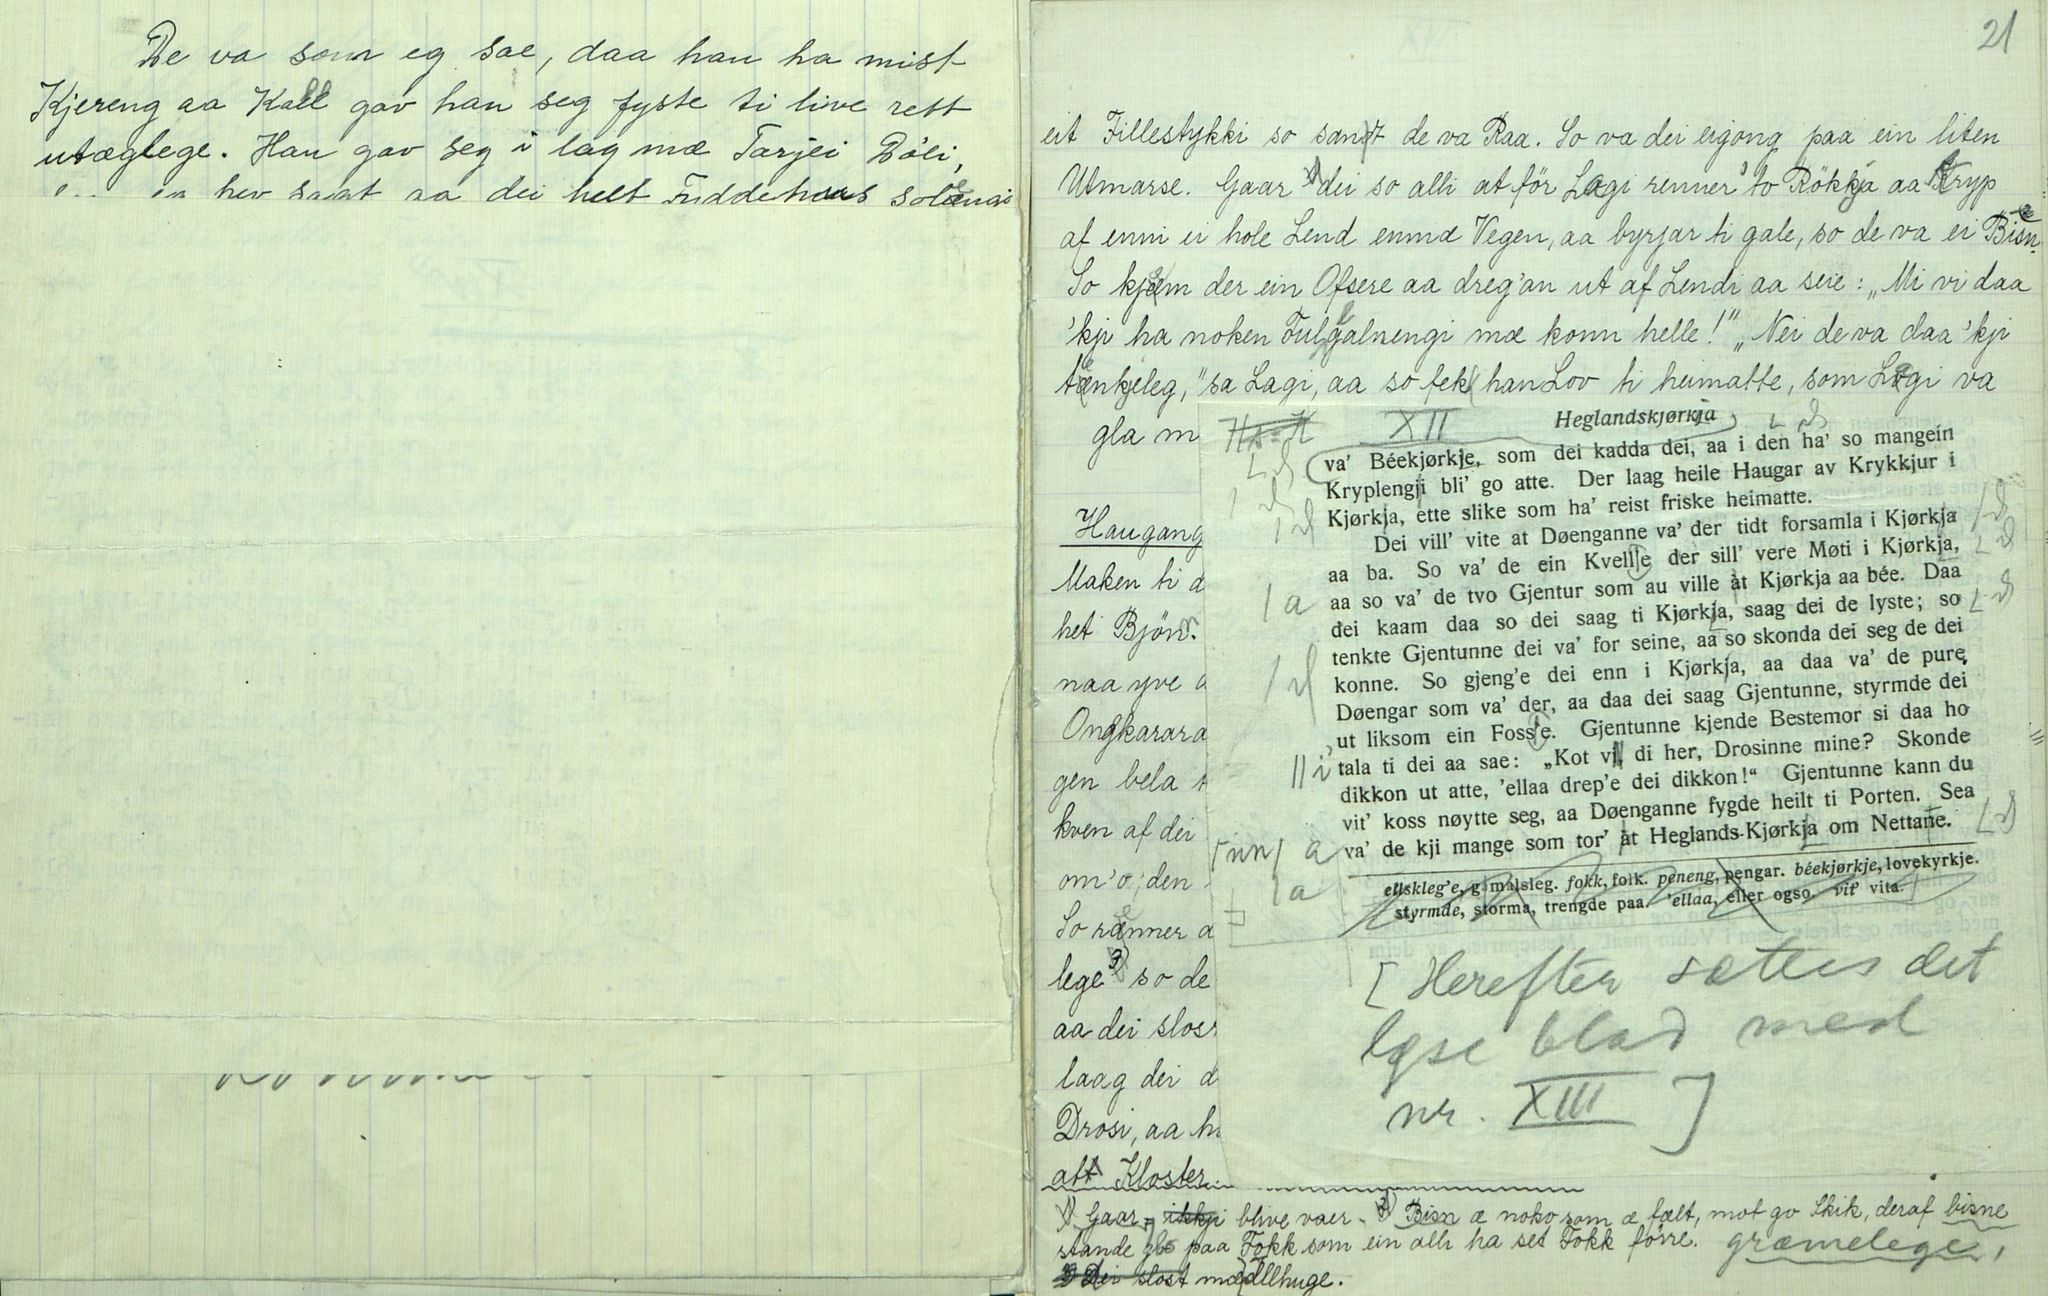 De va som eg sae, daa han ha mist
Kjereng aa Kall gav han seg fyste ti live rett
utæglege. Han gav seg i lag mæ Tarjei Böli,
hev sagt aa dei helt Fuddehaas
21
eit Fillestykki so sandt de va Raa. So va dei eigong paa ein liten
Utmarse. Gaar 1) dei so alli at för Lagi renner to Rökkja aa Kryp
af enni ei hole Lend enmæ Vegen, aa byrjar ti gale, so de va ei Bisn.
So kjem der ein Ofsere aa dreg'an ut af Lendi aa seie: „Mi vi daa
'kji ha noken Fulgalnengi mæ konn helle!" „Nei de va daa 'kji
tenkjeleg," sa Lagi, aa so fek han Lov ti heimatte, som Lagi va
gla m
XII
Heglandskjørkja
va' Béekjørkje, som dei kadda dei, aa i den ha' so mangein
Kryplengji bli' go atte. Der laag heile Haugar av Krykkjur i
Kjørkja, ette slike som ha' reist friske heimatte.
Dei vill' vite at Døenganne va' der tidt forsamla i Kjørkja
aa ba. So va' de ein Kvellje der sill' vere Møti i Kjørkja,
aa so va' de tvo Gjentur som au ville åt Kjørkja aa bée. Daa
dei kaam daa so dei saag ti Kjørkja, saag dei de lyste; so
tenkte Gjentunne dei va' for seine, aa so skonda dei seg de dei
konne. So gjeng'e dei enn i Kjørkja, aa daa va' de pure
Døengar som va' der, aa daa dei saag Gjentunne, styrmde dei
ut liksom ein Foss'e. Gjentunne kjende Bestemor si daa ho
tala ti dei aa sae: „Kot vil di her, Drosinne mine? Skonde
dikkon ut atte, 'ellaa drep'e dei dikkon!“ Gjentunne kann du
vit' koss nøytte seg, aa Døenganne fygde heilt ti Porten. Sea
va' de kji mange som tor' åt Heglands-Kjørkja om Nettane.
ellskleg'e, gamalsleg. fokk, folk. peneng, pengar. béekjørkje, lovekyrkje.
styrmde, storma, trengde paa. 'ellaa, eller ogso. vit' vita.
[Herefter sættes det
løse blad med
nr. XIII]
Haugang
Maken ti d
het Björn.
naa yve
Ongkarara
gen bela
kven af dei
om'o, den
So renner a
lege 3) so de
aa dei slos
laag dei d
Drosi, aa h
att Kloster.
1) Gaar = ikkji blive vaer. 2) Bisn æ noko som æ fælt, mot go Skik, deraf bisne
stande paa Fokk som ein alli ha set Fokk förre. græmelege,
3) Dei slost mæ Allhuge.